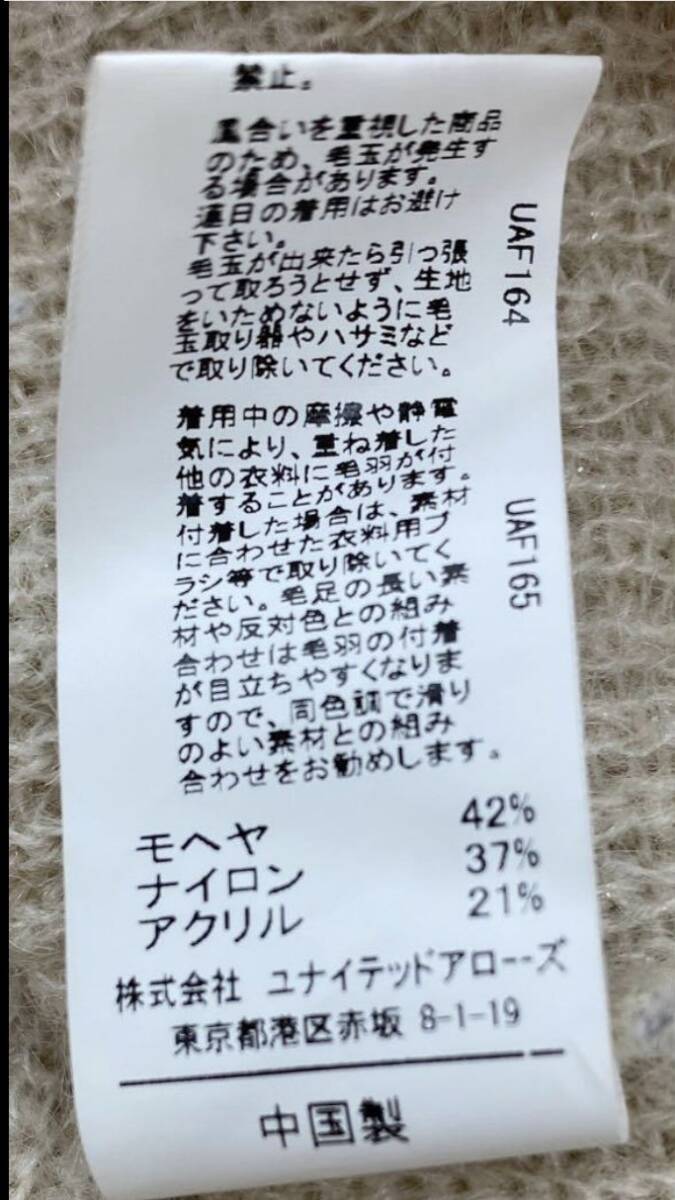 禁止。
風合いを重視した商品
のため、毛玉が発生す
る場合があります。
連日の着用はお避け
下さい。
毛玉が出来たら引っ張
って取ろうとせず、生地
をいためないように毛
玉取り器やハサミなど
で取り除いてください。
着用中の摩擦や静電
気により、重ね着した
他の衣料に毛羽が付
着することがあります。
付着した場合は、素材
に合わせた衣料用ブ
ラシ等で取り除いてく
ださい。毛足の長い素
材や反対色との組み
合わせは毛羽の付着
が目立ちやすくなりま
すので、同色調で滑り
のよい素材との組み
合わせをお勧めします。
UAF164
UAF165
モヘヤ 42%
ナイロン 37%
アクリル 21%
株式会社 ユナイテッドアローズ
東京都港区赤坂 8-1-19
中国製